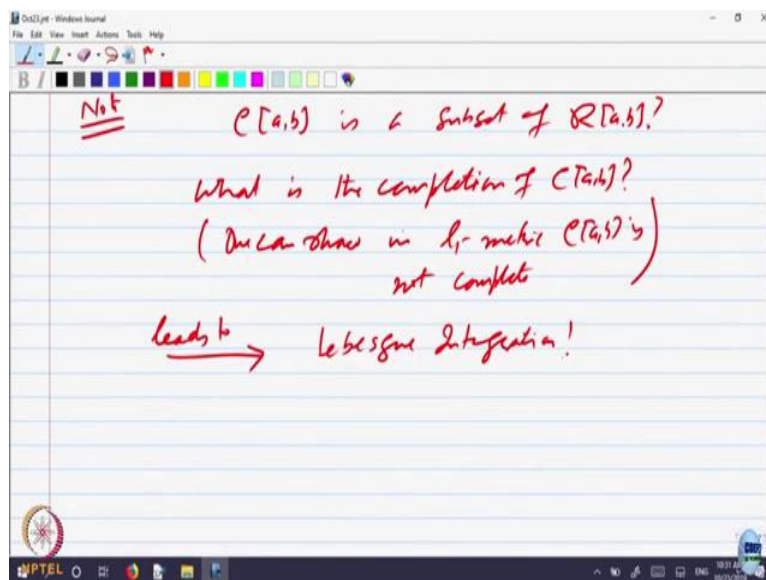 Oct23.jnt - Windows Journal
File Edit View Insert Actions Tools Help
B I
Not C[a,b] is a subset of R[a,b]?
What is the completion of C[a,b]?
(One can show in l₁-metric C[a,b] is
not complete)
leads to → Lebesgue Integration!
NPTEL
ENG